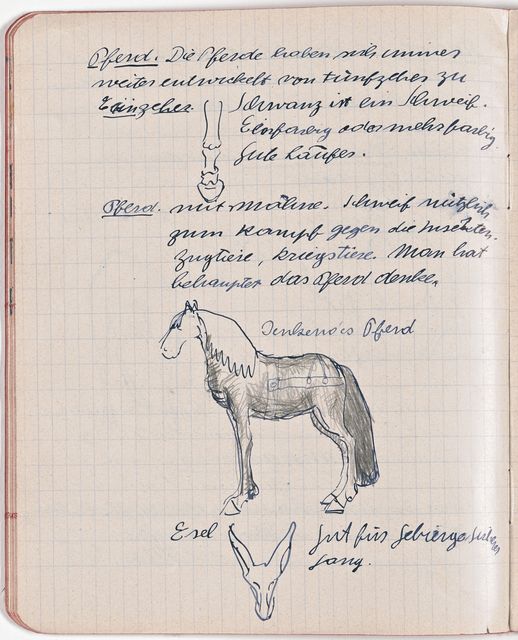 Pferd. Die Pferde haben sich immer
weiter entwickelt von Fünfzeher zu
Einzeher. Schwanz ist ein Schweif.
Einfarbig oder mehrfarbig.
Gute Läufer.
Pferd. mit Mähne. Schweif nützlich
zum Kampf gegen die Insekten.
Zugtiere, Kriegstiere. Man hat
behauptet das Pferd denke.
Pferd
Esel Gut für Gebirge
gang.